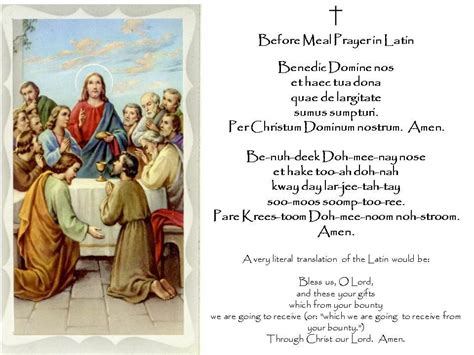 Before Meal Prayer in Latin
Benedic Domine nos
et haec tua dona
quae de largitate
sumus sumpturi.
Per Christum Dominum nostrum. Amen.
Be-nuh-deek Doh-mee-nay nose
et hake too-ah doh-nah
kway day lar-jee-tah-tay
soo-moos soomp-too-ree.
Pare Krees-toom Doh-mee-noom noh-stroom.
Amen.
A very literal translation of the Latin would be:
Bless us, O Lord,
and these your gifts
which from your bounty
we are going to receive (or: "which we are going to receive from
your bounty.")
Through Christ our Lord. Amen.